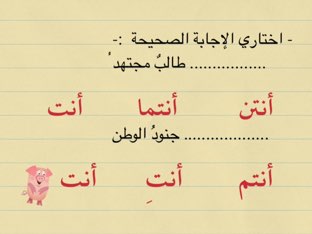 - اختاري الإجابة الصحيحة :-
................. طالبٌ مجتهد ٌ
أنتن أنتما أنت
................... جنودُ الوطن
أنتم أنتِ أنت